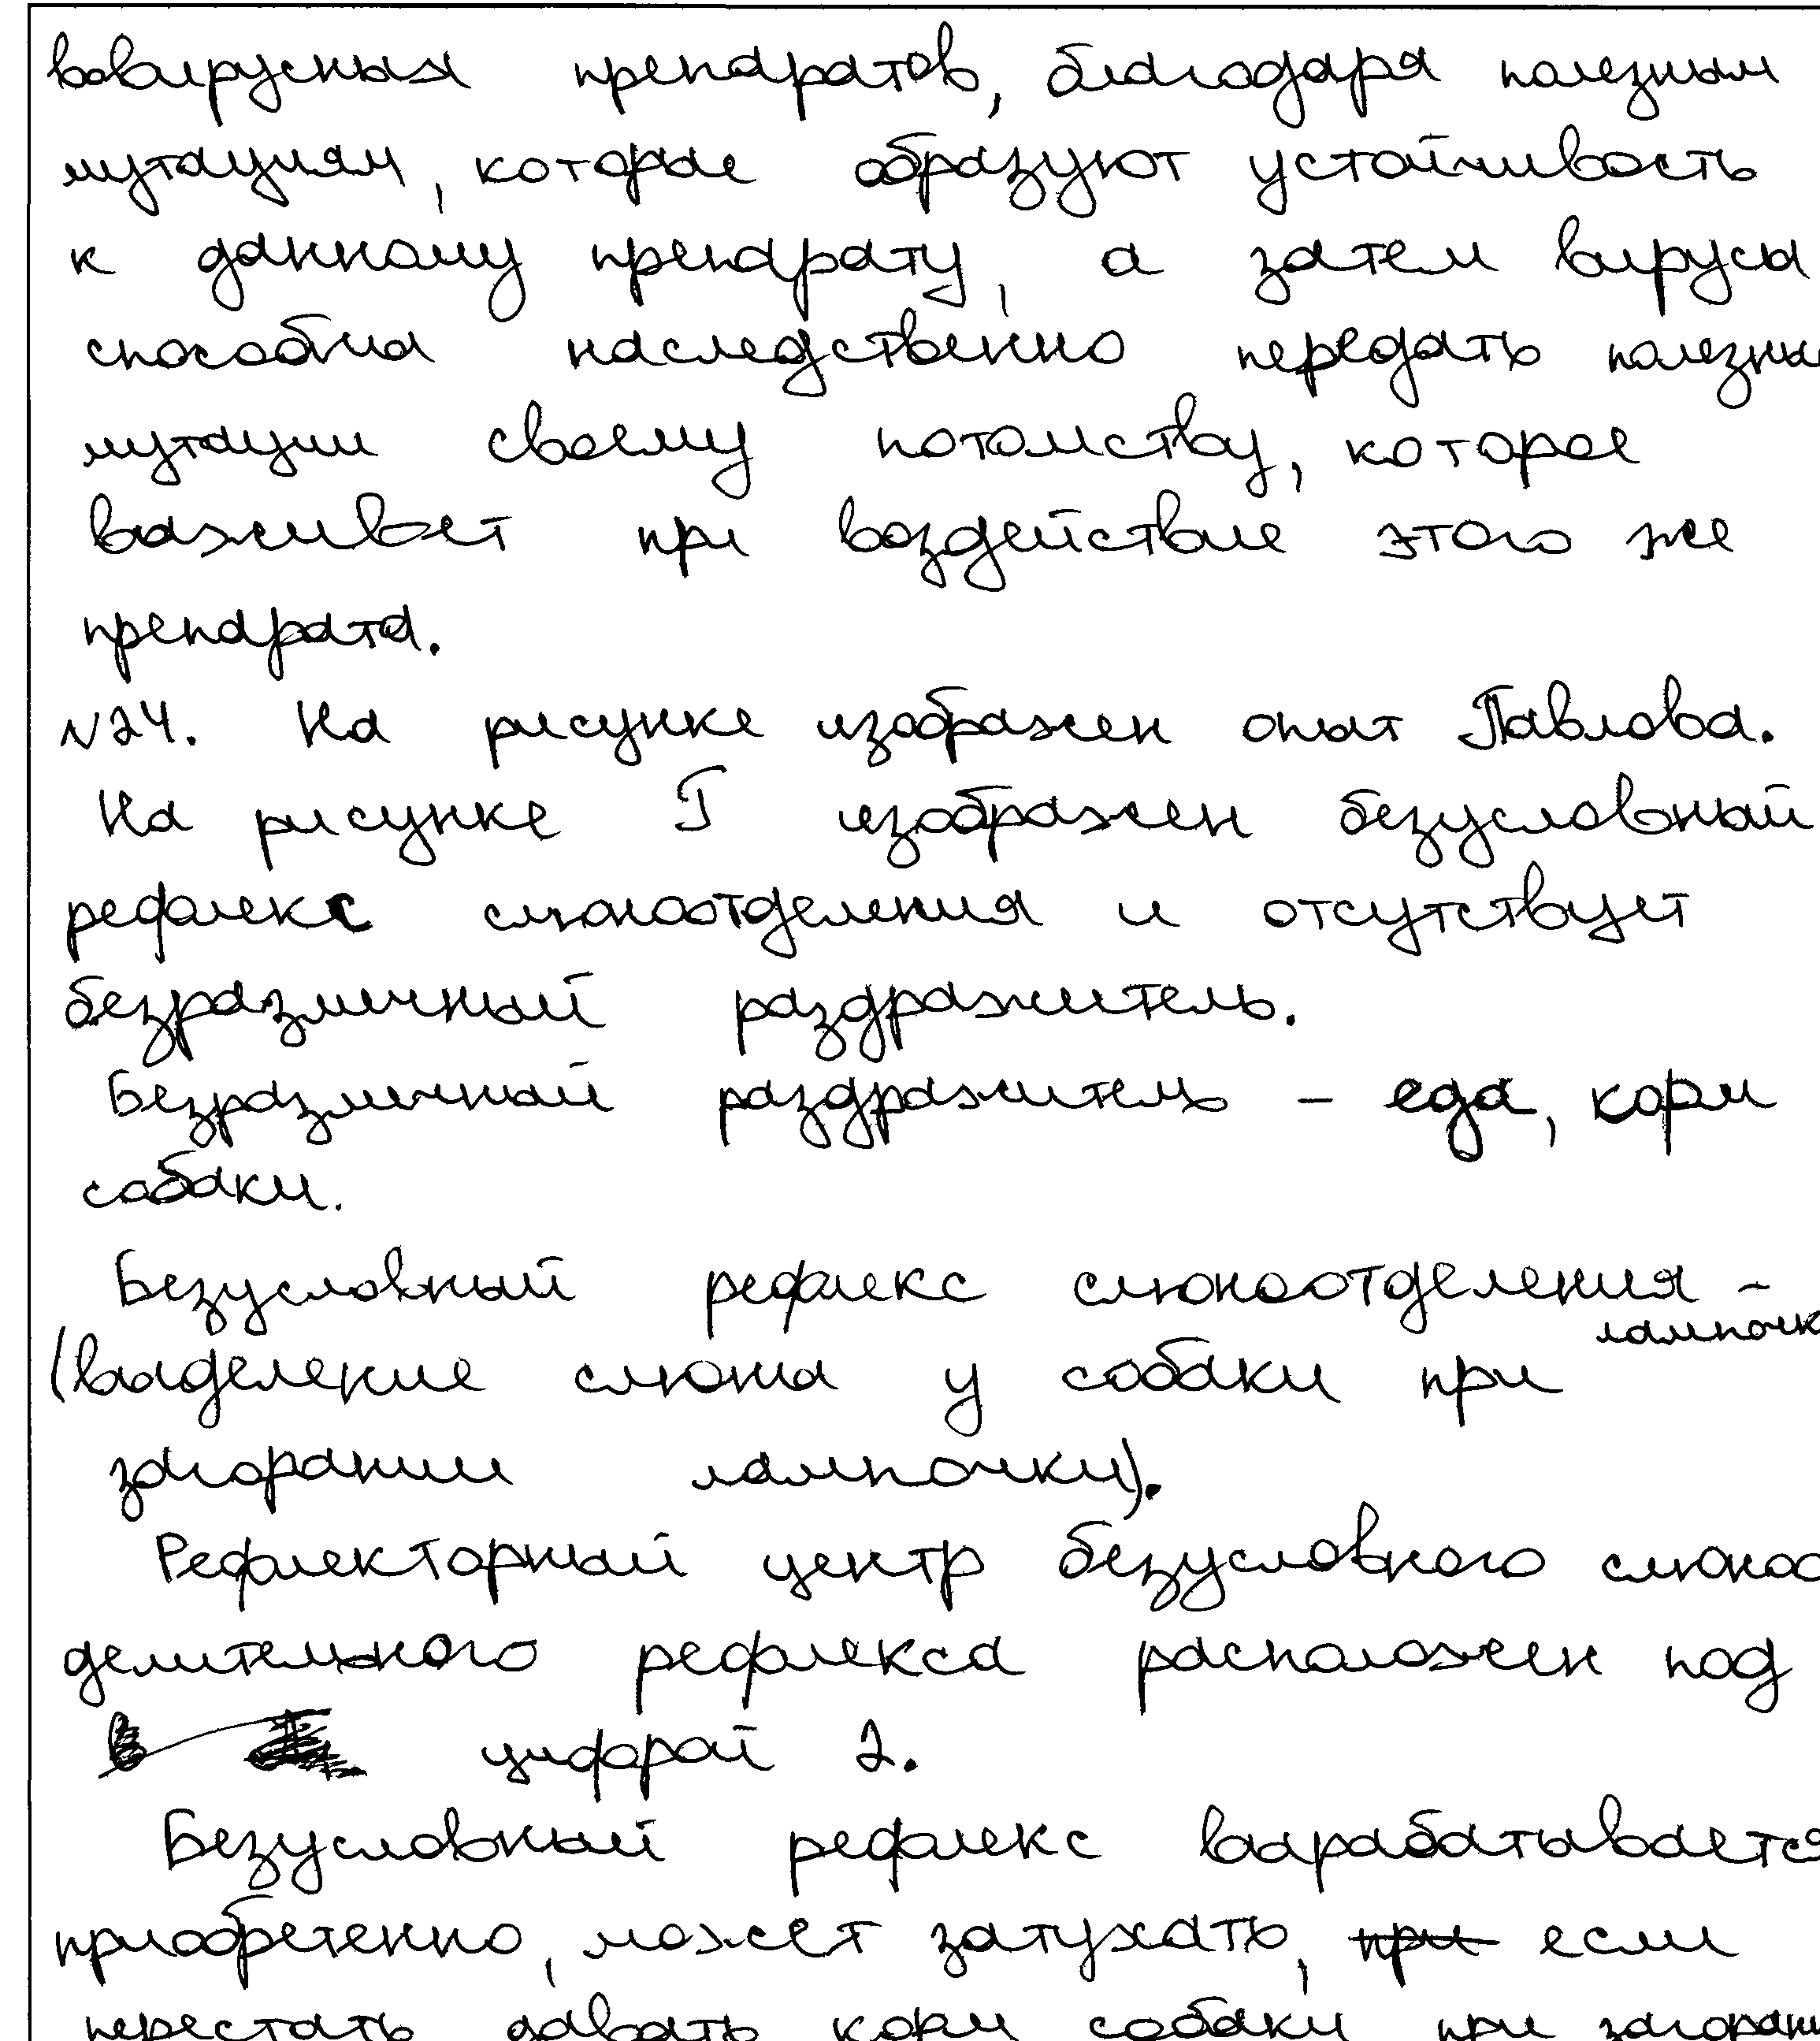 вовирусных препаратов, благодаря полезным
мутациям, которые образуют устойчивость
к данному препарату, а затем вирусы
способны наследственно передать полезны
мутации своему потомству, которое
выживет при воздействие этого же
препарата.
№24. На рисунке изображен опыт Павлова.
На рисунке Г изображен безусловный
рефлекс слюноотделения и отсутствует
безразличный раздражитель.
Безразличный раздражитель – еда, корм
собаки.
Безусловный рефлекс слюноотделения –
лампочк
(выделение слюны у собаки при
загорании лампочки).
Рефлекторный центр безусловного слюноо
делительного рефлекса расположен под
цифрой 2.
Безусловный рефлекс вырабатывается
приобретенно, может затухать, при если
перестать давать корм собаки при загоран